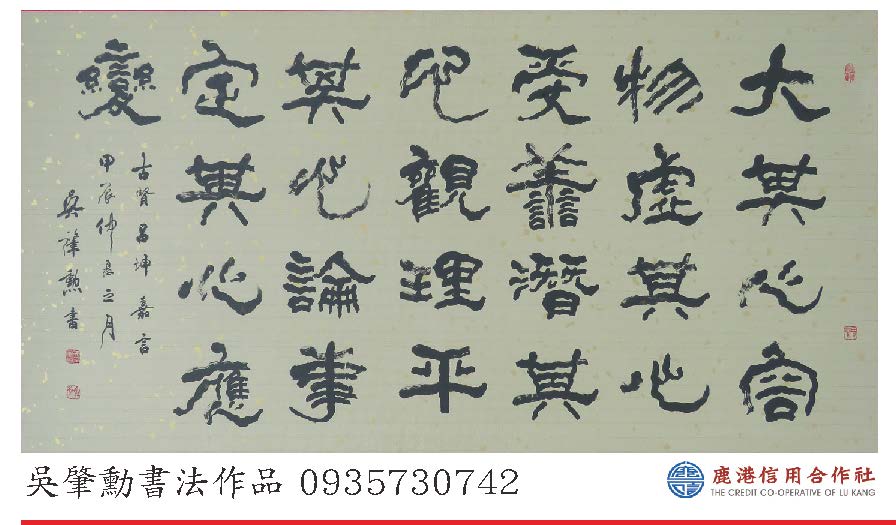 大其心容
物虛其心
受善潛其
心觀理平
其心論事
定其心應
變
古賢呂坤嘉言
甲辰仲夏之月
吳肇勳書
吳肇勳書法作品 0935730742
鹿港信用合作社
THE CREDIT CO-OPERATIVE OF LU KANG